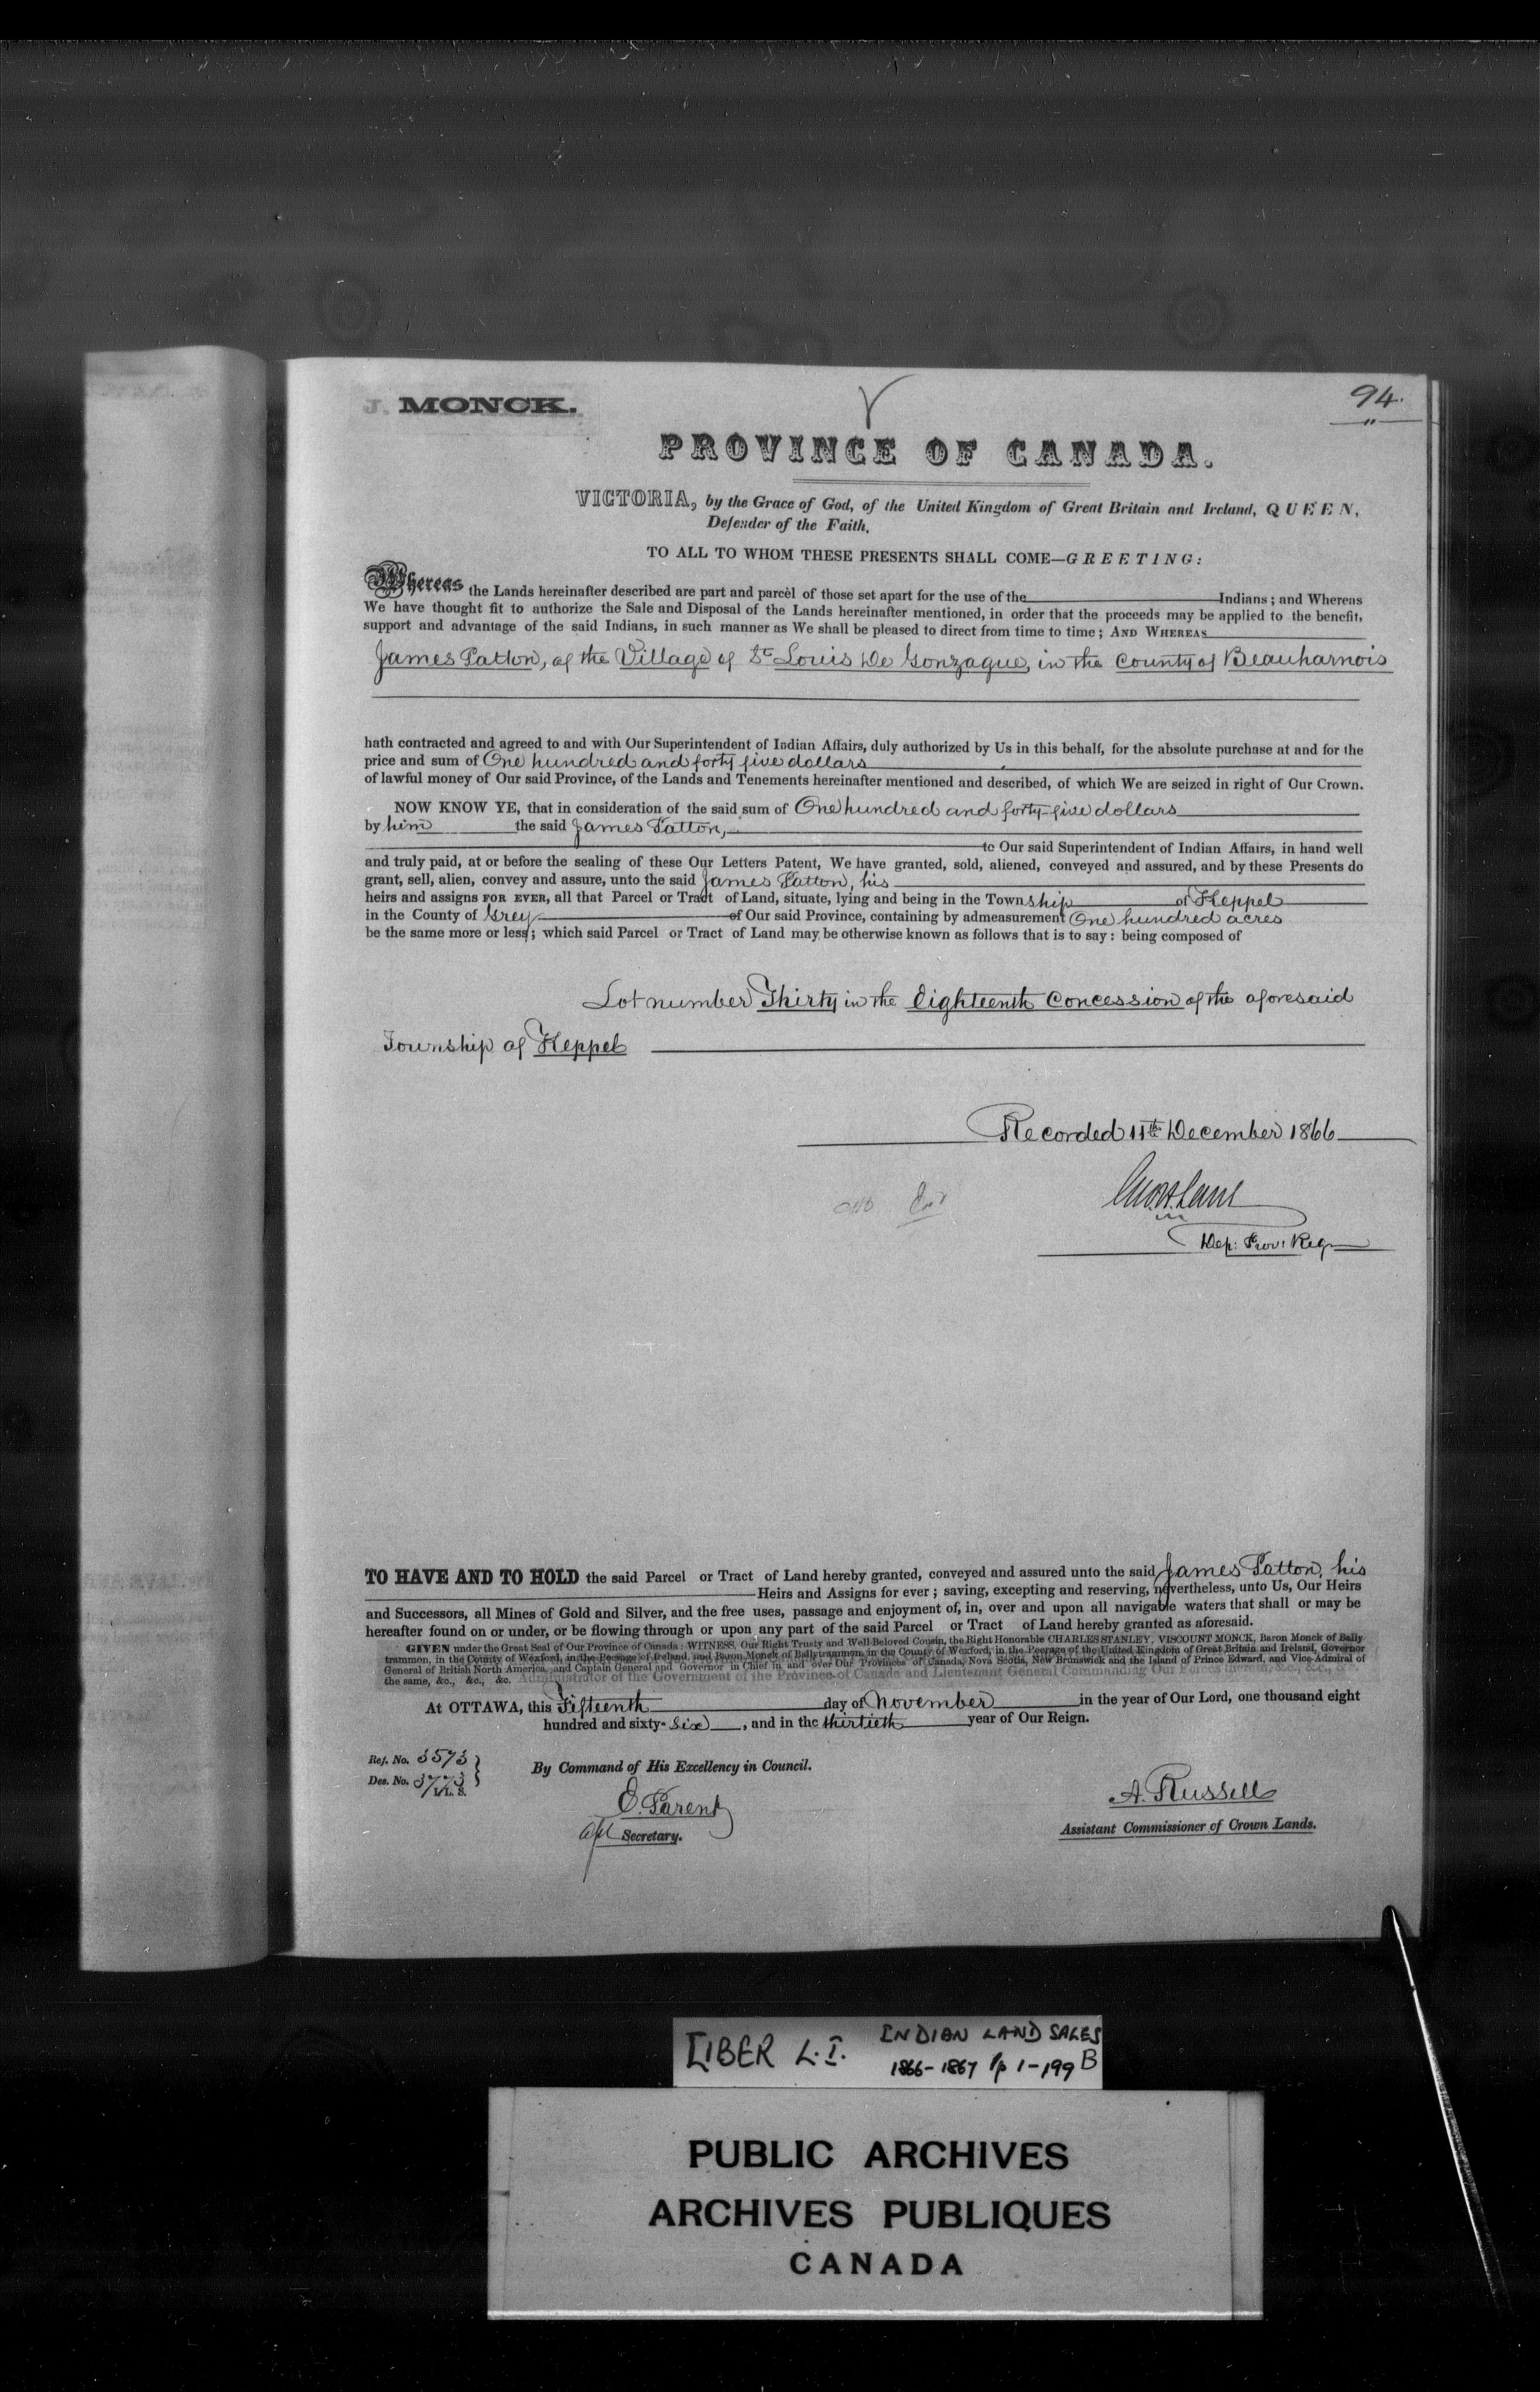 J. MONCK.
94.
PROVINCE OF CANADA.
VICTORIA, by the Grace of God, of the United Kingdom of Great Britain and Ireland, QUEEN,
Defender of the Faith,
TO ALL TO WHOM THESE PRESENTS SHALL COME—GREETING:
Whereas the Lands hereinafter described are part and parcel of those set apart for the use of the Indians; and Whereas
We have thought fit to authorize the Sale and Disposal of the Lands hereinafter mentioned, in order that the proceeds may be applied to the benefit,
support and advantage of the said Indians, in such manner as We shall be pleased to direct from time to time; AND WHEREAS
James Patton, of the Village of St Louis De Gonzague, in the County of Beauharnois
hath contracted and agreed to and with Our Superintendent of Indian Affairs, duly authorized by Us in this behalf, for the absolute purchase at and for the
price and sum of One hundred and forty five dollars
of lawful money of Our said Province, of the Lands and Tenements hereinafter mentioned and described, of which We are seized in right of Our Crown.
NOW KNOW YE, that in consideration of the said sum of One hundred and forty-five dollars
by him the said James Patton,
to Our said Superintendent of Indian Affairs, in hand well
and truly paid, at or before the sealing of these Our Letters Patent, We have granted, sold, aliened, conveyed and assured, and by these Presents do
grant, sell, alien, convey and assure, unto the said James Patton, his
heirs and assigns FOR EVER, all that Parcel or Tract of Land, situate, lying and being in the Township of Keppel
in the County of Grey of Our said Province, containing by admeasurement One hundred acres
be the same more or less; which said Parcel or Tract of Land may be otherwise known as follows that is to say: being composed of
Lot number Thirty in the Eighteenth Concession of the aforesaid
Township of Keppel
Recorded 11th December 1866
Dep: Prov: Reg
TO HAVE AND TO HOLD the said Parcel or Tract of Land hereby granted, conveyed and assured unto the said James Patton, his
Heirs and Assigns for ever; saving, excepting and reserving, nevertheless, unto Us, Our Heirs
and Successors, all Mines of Gold and Silver, and the free uses, passage and enjoyment of, in, over and upon all navigable waters that shall or may be
hereafter found on or under, or be flowing through or upon any part of the said Parcel or Tract of Land hereby granted as aforesaid.
GIVEN under the Great Seal of Our Province of Canada: WITNESS, Our Right Trusty and Well-Beloved Cousin, the Right Honorable CHARLES STANLEY, VISCOUNT MONCK, Baron Monck of Bally
trammon, in the County of Wexford, in the Peerage of Ireland, and Baron Monck of Ballytrammon, in the County of Wexford, in the Peerage of the United Kingdom of Great Britain and Ireland, Governor
General of British North America, and Captain General and Governor in Chief in and over Our Provinces of Canada, Nova Scotia, New Brunswick and the Island of Prince Edward, and Vice-Admiral of
the same, &c., &c., &c. Administrator of the Government of the Province of Canada and Lieutenant General Commanding Our Forces therein, &c., &c., &c.
At OTTAWA, this Fifteenth day of November in the year of Our Lord, one thousand eight
hundred and sixty-six, and in the thirtieth year of Our Reign.
Ref. No. 3573
Des. No. 3773
I.L.S.
By Command of His Excellency in Council.
E. Parent
Secretary.
A. Russell
Assistant Commissioner of Crown Lands.
LIBER L.I. INDIAN LAND SALES
1866-1867 Pp 1-199 B
PUBLIC ARCHIVES
ARCHIVES PUBLIQUES
CANADA